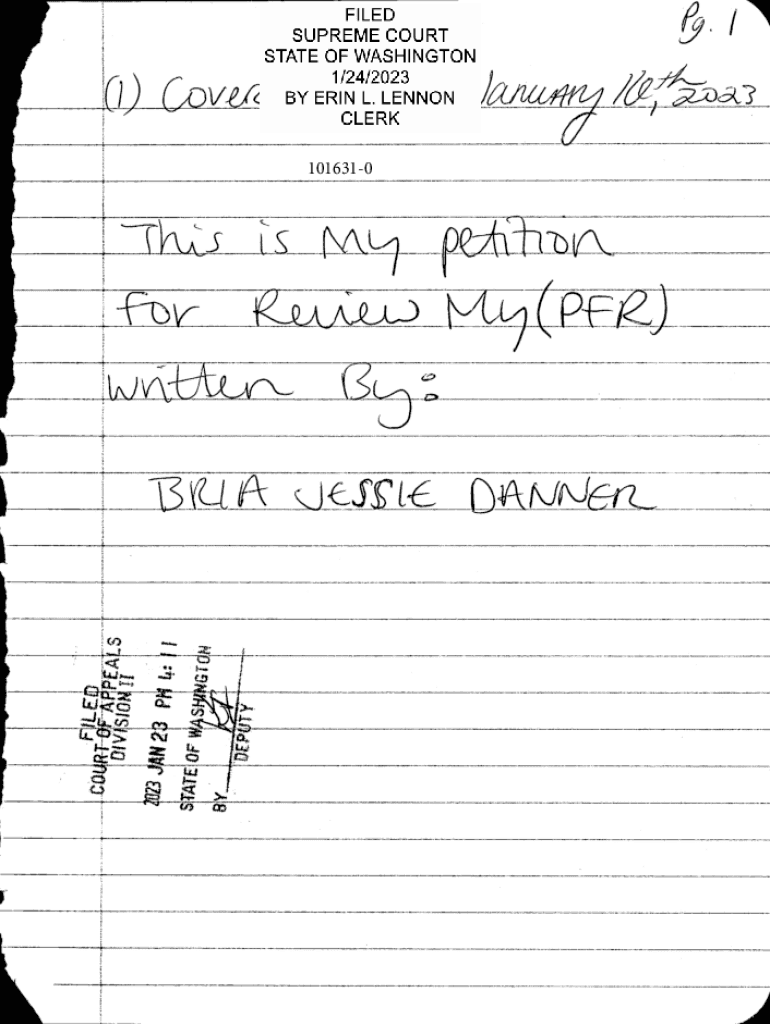 Pg. 1
FILED
SUPREME COURT
STATE OF WASHINGTON
1/24/2023
BY ERIN L. LENNON
CLERK
(1) Cover January 16th, 2023
101631-0
This is My petition
for Review My (PFR)
written By:
BRIA JESSIE DANNER
FILED
COURT OF APPEALS
DIVISION II
2023 JAN 23 PM 4:11
STATE OF WASHINGTON
BY
DEPUTY